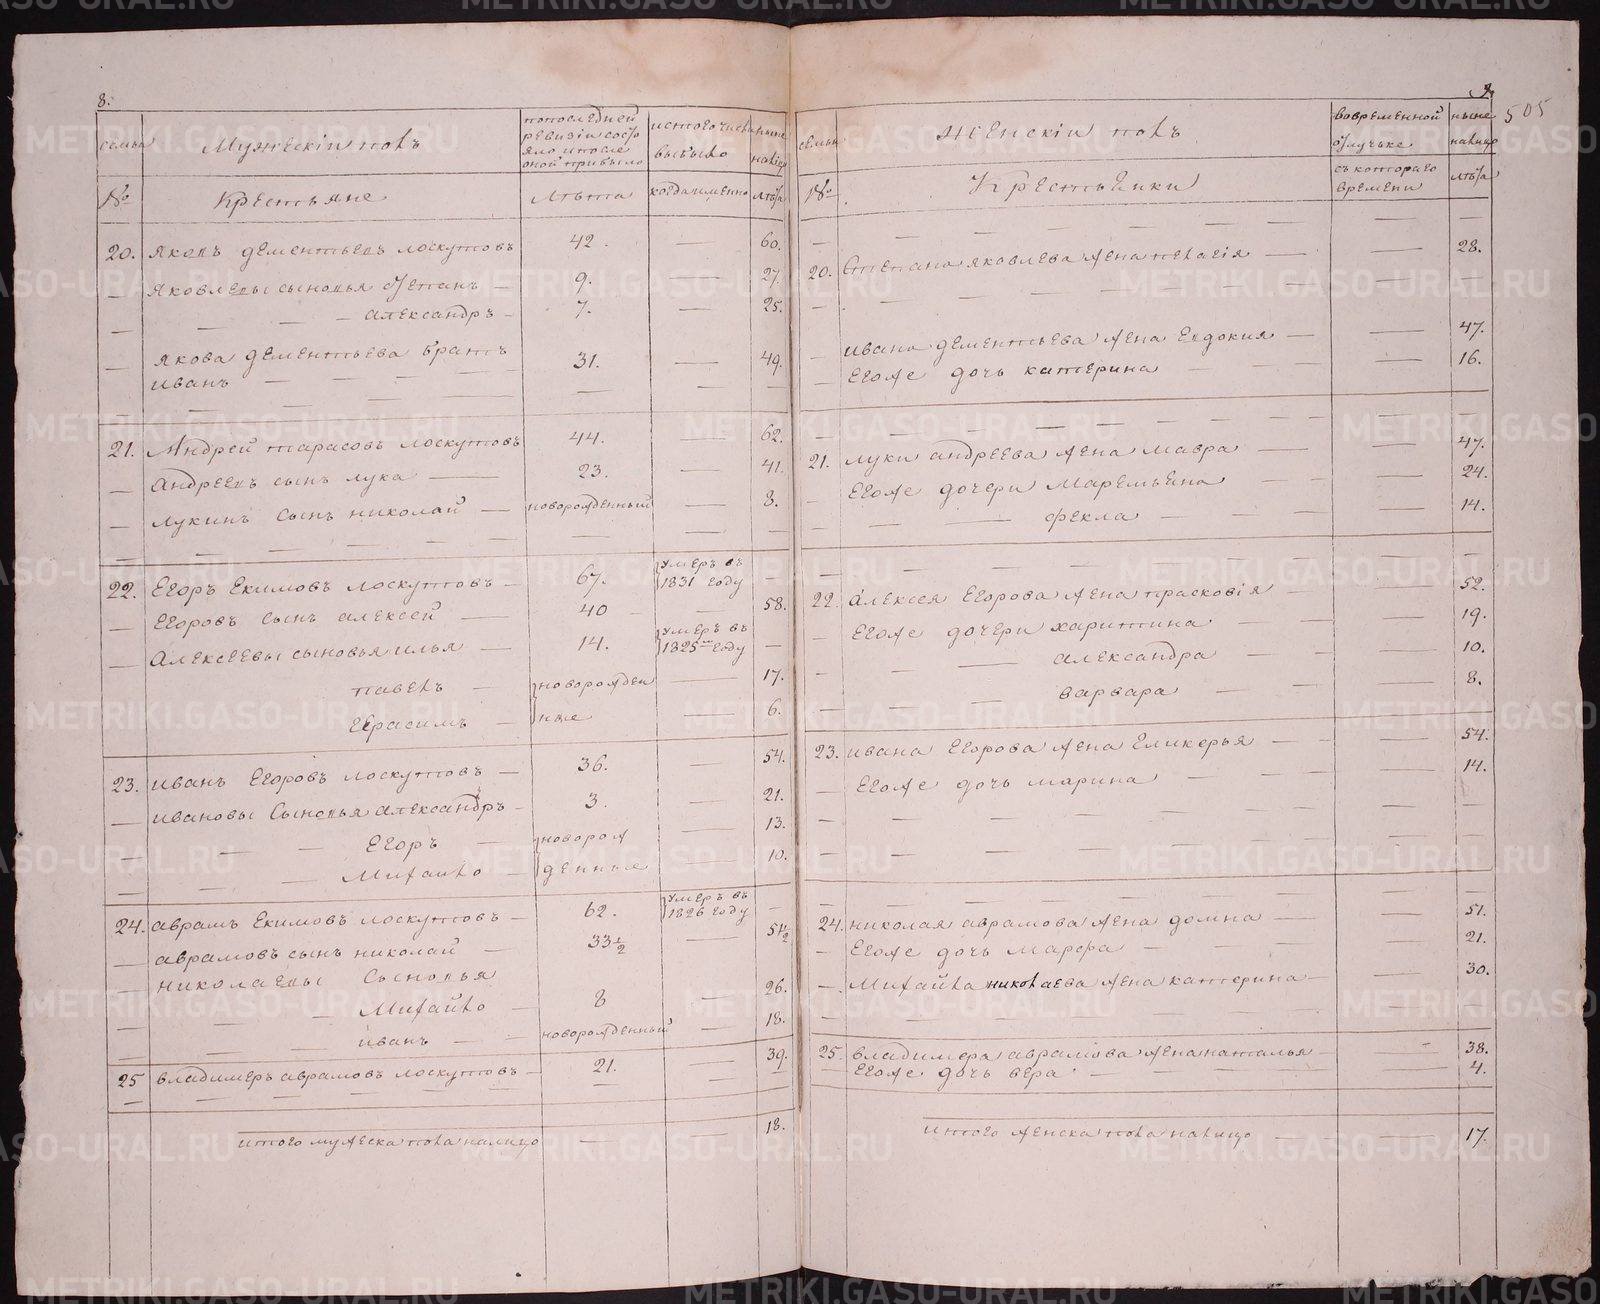 8.
семьи
Мужескiй полъ
попоследней
ревизiи состо
яло ипосле
оной прибыло
изтого числа
выбыло
ныне
налицо
№
Крестьяне
лѣта
когда именно
лѣта
20. Яковъ дементьевъ лоскутовъ 42. — 60.
— Яковлевы сыновья Степанъ — 9. — 27.
— — — Александръ — 7. — 25.
— Якова дементьева братъ
иванъ — — — 31. — 49.
21. Андрей тарасовъ лоскутовъ 44. — 62.
— Андреевъ сынъ лука — 23. — 41.
— лукинъ сынъ николай — новорожденный — 8.
22. Егоръ Екимовъ лоскутовъ — 67. умеръ въ
1831 году —
— Егоровъ сынъ алексей — 40 — 58.
— Алексеевы сыновья илья — 14. умеръ въ
1825м году —
павелъ — новорожден — 17.
Герасимъ — ные — 6.
23. иванъ Егоровъ лоскутовъ — 36. — 54.
— ивановы Сыновья александръ — 3. — 21.
— — — Егоръ — новорож — 13.
— — — Михайло — денные — 10.
24. аврамъ Екимовъ лоскутовъ — 62. умеръ въ
1826 году —
— аврамовъ сынъ николай — 33½ — 51½
— николаевы Сыновья
— — — Михайло — 8 — 26.
— — — иванъ — новорожденный — 18.
25 владимеръ аврамовъ лоскутовъ — 21. — 39.
итого мужеска пола налицо — — 18.
9.
505
семьи
Женскiй полъ
вовременной
отлучке
ныне
налицо
№
Крестьянки
съ котораго
времени
лѣта
20. Степана яковлева жена пелагiя — — 28.
— ивана дементьева жена Евдокия — — 47.
— Егоже дочь катерина — — 16.
21. луки андреева жена мавра — — 47.
— Егоже дочери Маремьяна — — 24.
— — фекла — — 14.
22. алексея Егорова жена прасковiя — — 52.
— Егоже дочери харитина — — 19.
— — александра — — 10.
— — варвара — — 8.
23. ивана Егорова жена Гликерья — — 54.
— Егоже дочь марина — — 14.
24. николая аврамова жена домна — — 51.
— Егоже дочь марфа — — 21.
— Михайла николаева жена катерина — — 30.
25. владимера аврамова жена наталья — — 38.
— Егоже дочь вера — — 4.
итого женска пола налицо — — 17.
METRIKI.GASO-URAL.RU